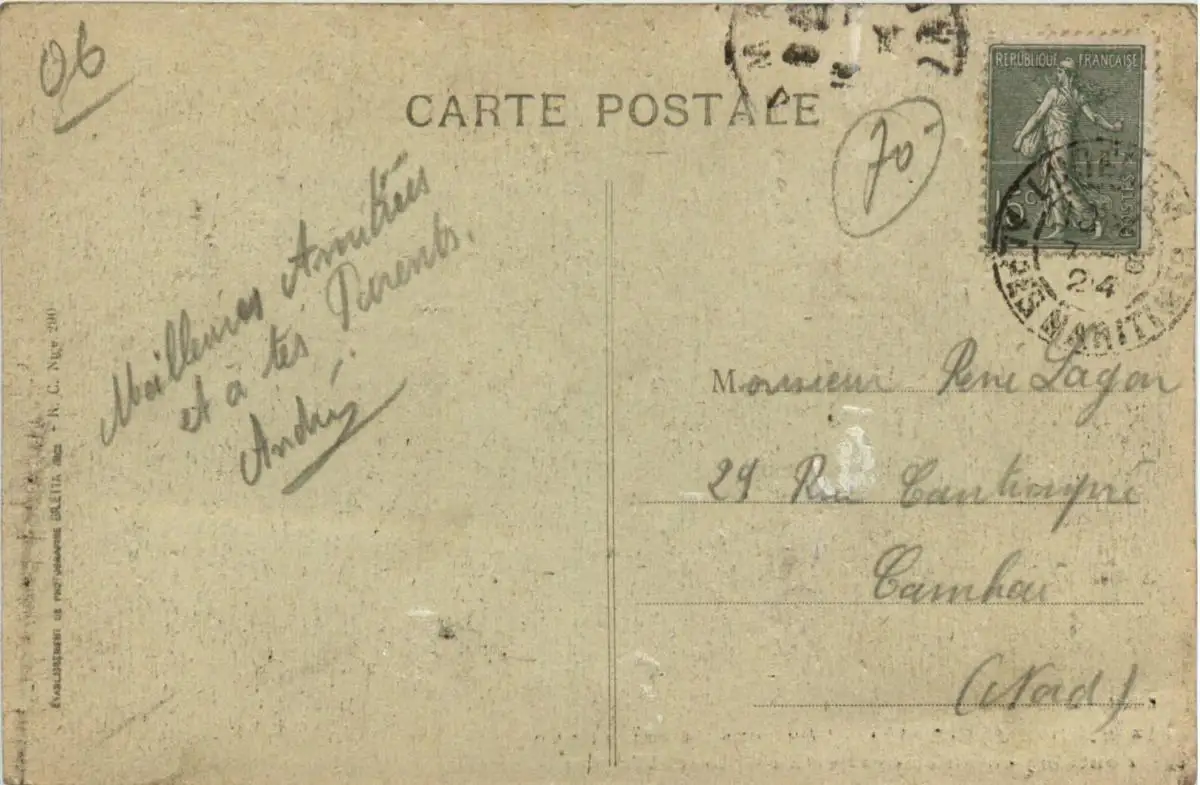 06
CARTE POSTALE
70
RÉPUBLIQUE FRANÇAISE
15 C
POSTES
24
MARITIMES
Meilleures Amitiées
et à tes Parents.
André
Monsieur René Lagon
29 Rue Cantimpré
Cambrai
(Nord).
ÉTABLISSEMENT DE PHOTOGRAPHIE GILETTA - R. C. Nice 290